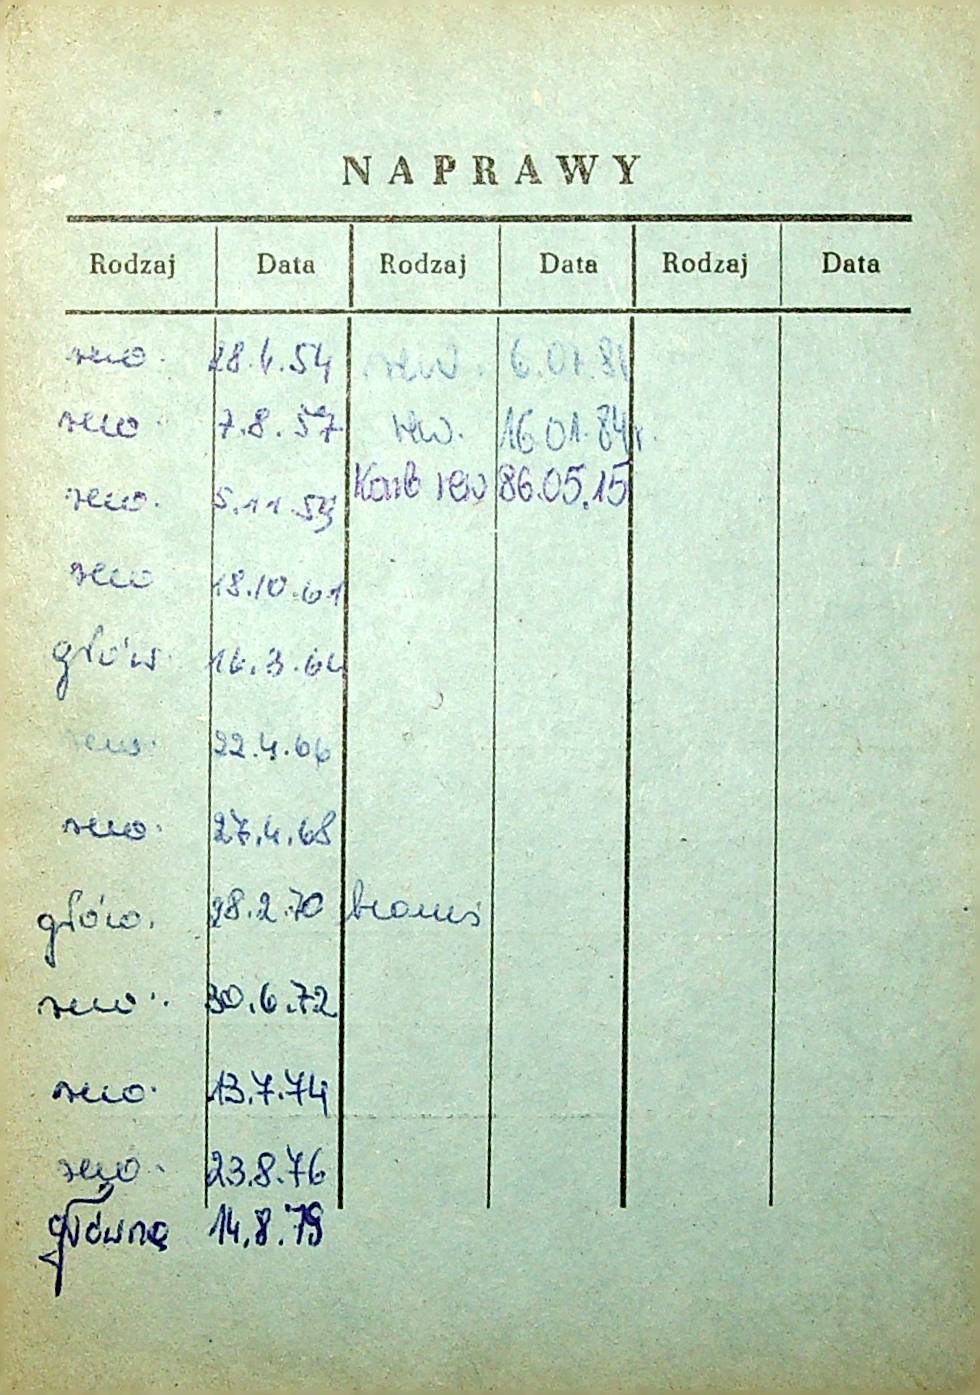 NAPRAWY
Rodzaj Data Rodzaj Data Rodzaj Data
rew. 28.4.54 rew. 6.07.81
rew. 7.8.57 rew. 16.01.84r.
rew. 5.11.59 Kont rew 86.05.15
rew 18.10.61
głów. 16.3.64
rew. 22.4.66
rew. 27.4.68
głów. 28.2.70
rew. 30.6.72
rew. 13.7.74
rew. 23.8.76
główna 14.8.79